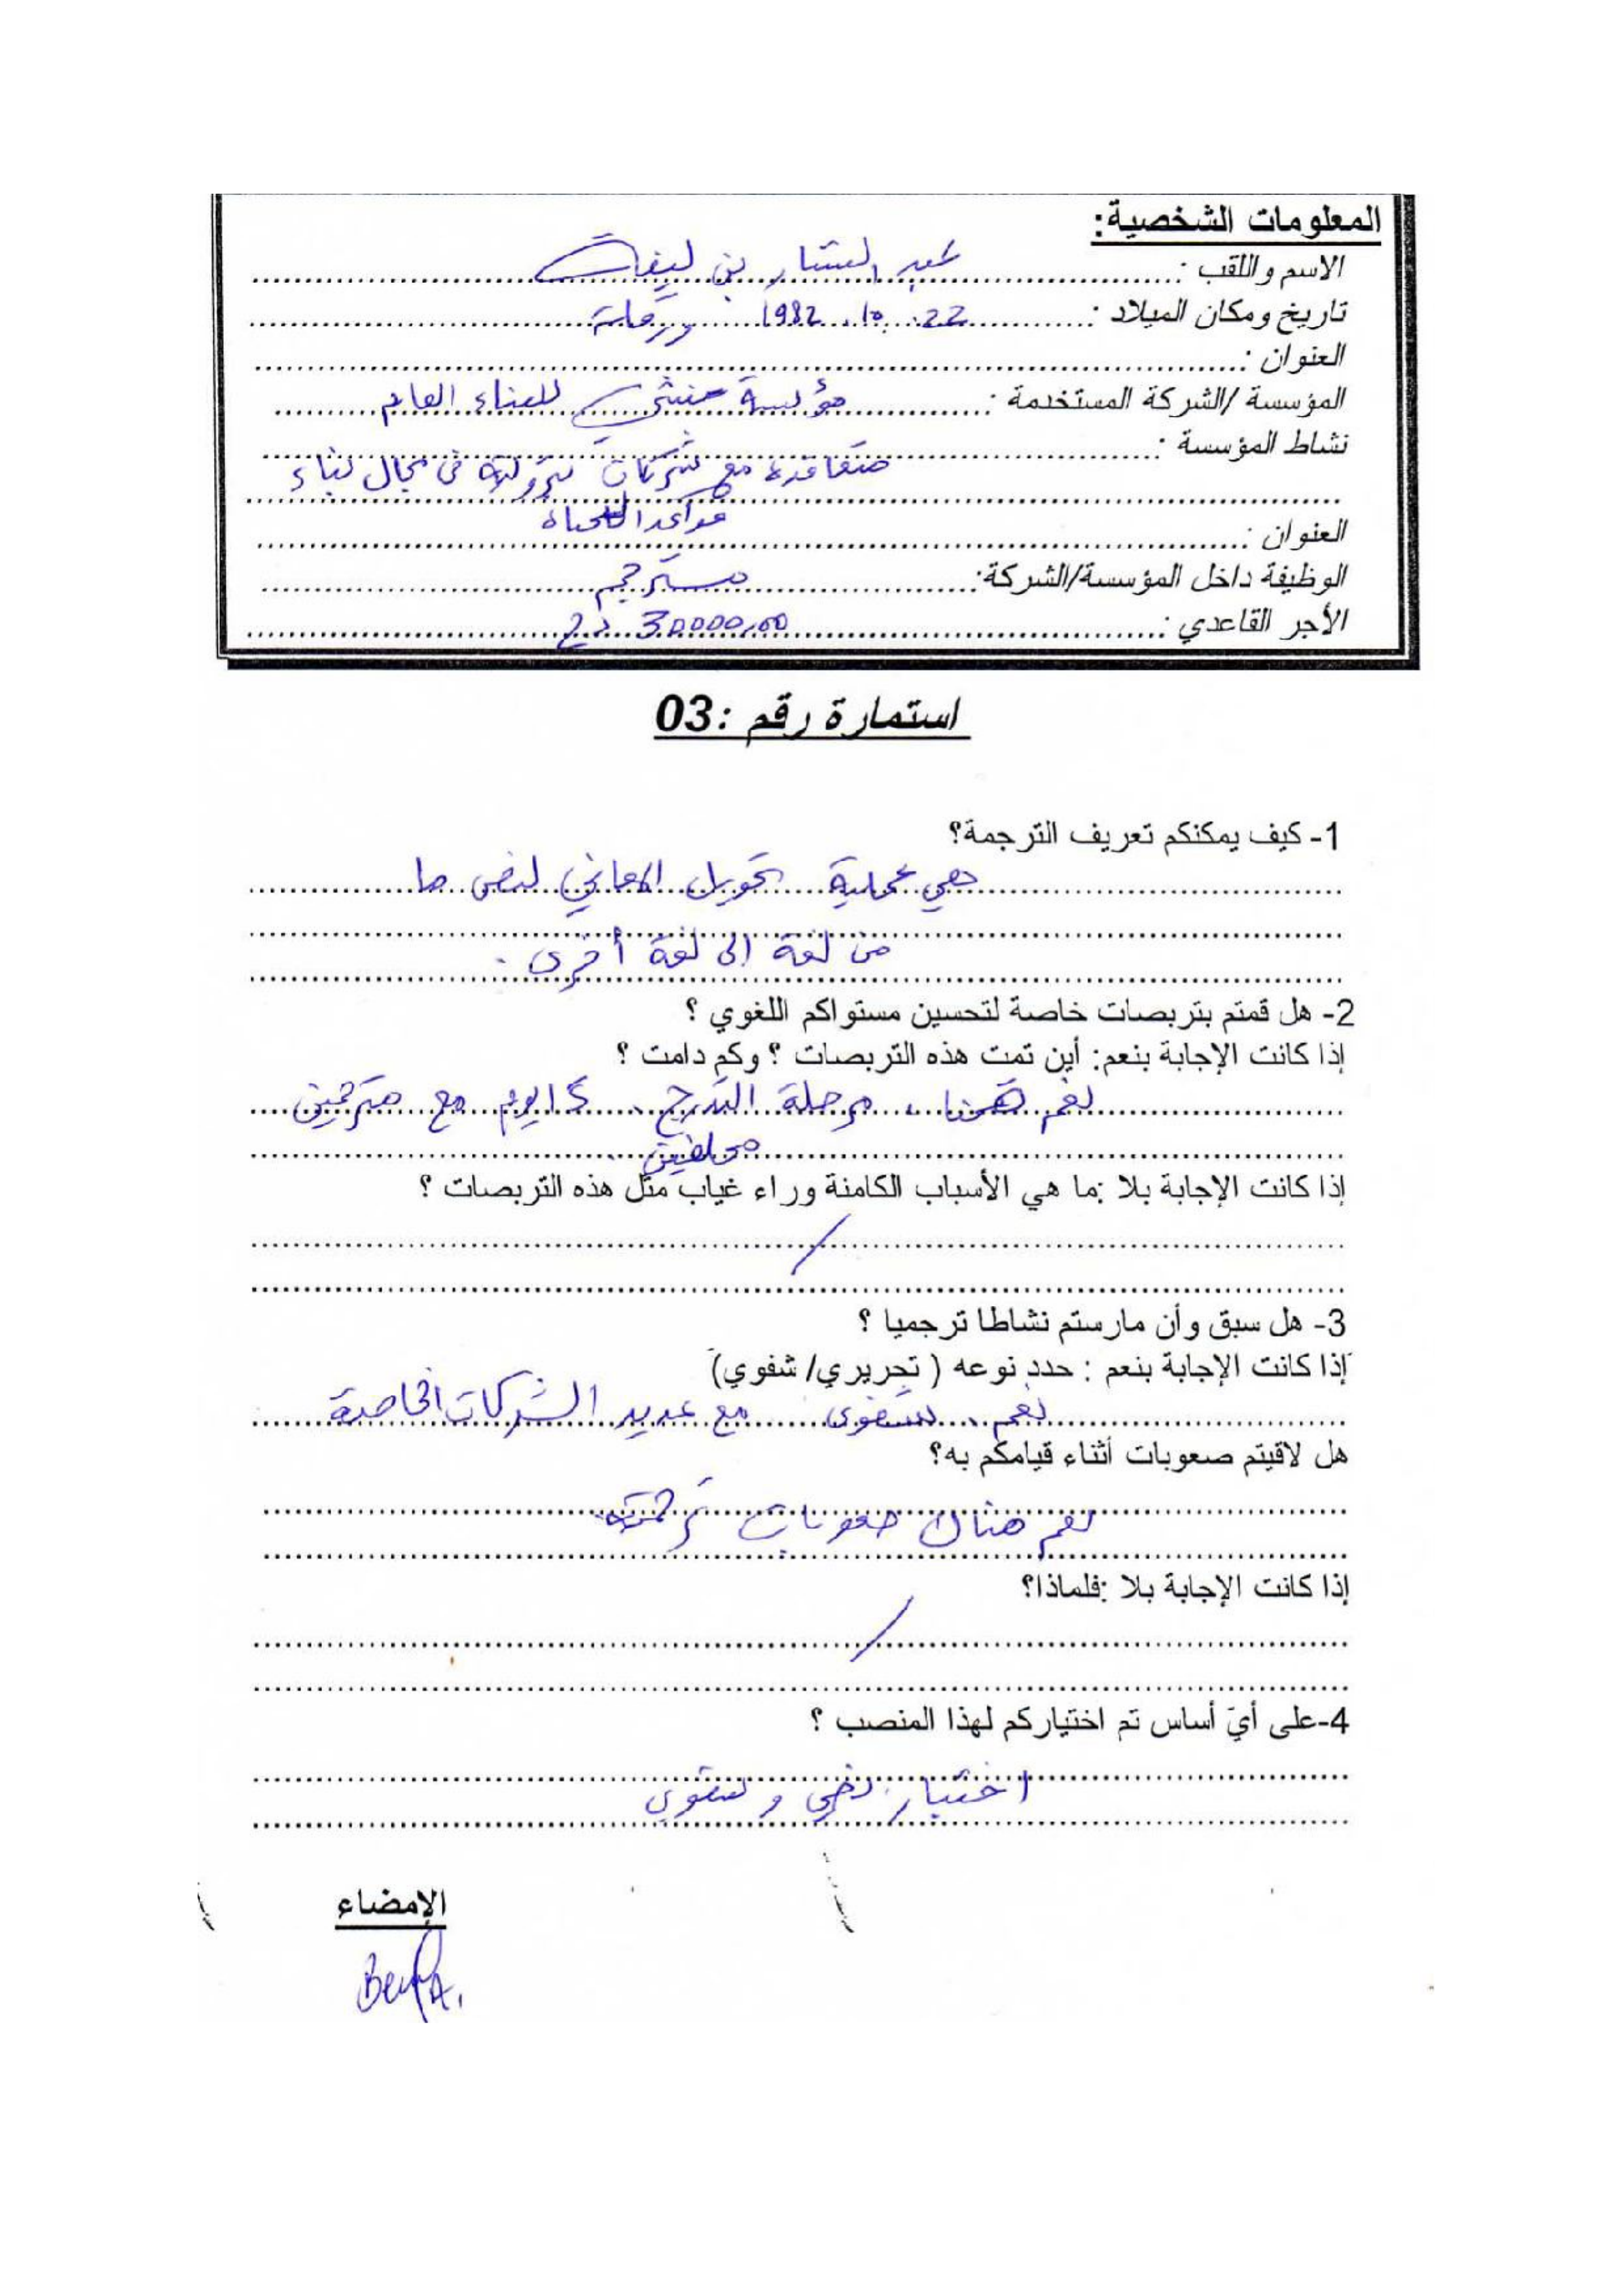 المعلومات الشخصية:
الاسم واللقب : عبد الستار بن
تاريخ ومكان الميلاد : 22 . 10 . 1982 ورقلة
العنوان :
المؤسسة /الشركة المستخدمة : مؤسسة للبناء العام
نشاط المؤسسة :
متعاقدة مع شركات بترولية في مجال بناء
قواعد الحياة
العنوان :
الوظيفة داخل المؤسسة/الشركة: مترجم
الأجر القاعدي : 30000,00 دج
استمارة رقم :03
1- كيف يمكنكم تعريف الترجمة؟
هي عملية تحويل المعاني لنص ما
من لغة إلى لغة أخرى .
2- هل قمتم بتربصات خاصة لتحسين مستواكم اللغوي ؟
إذا كانت الإجابة بنعم: أين تمت هذه التربصات ؟ وكم دامت ؟
نعم قمنا ، مرحلة التدرج ، يوم مع مترجمين
محلفين
إذا كانت الإجابة بلا :ما هي الأسباب الكامنة وراء غياب مثل هذه التربصات ؟
/
3- هل سبق وأن مارستم نشاطا ترجميا ؟
إذا كانت الإجابة بنعم : حدد نوعه ( تحريري/ شفوي)
نعم ، شفوي مع عديد الشركات الخاصة
هل لاقيتم صعوبات أثناء قيامكم به؟
نعم هناك صعوبات ترجمية
إذا كانت الإجابة بلا :فلماذا؟
/
4-على أيّ أساس تم اختياركم لهذا المنصب ؟
اختبار نصي و شفوي
الإمضاء